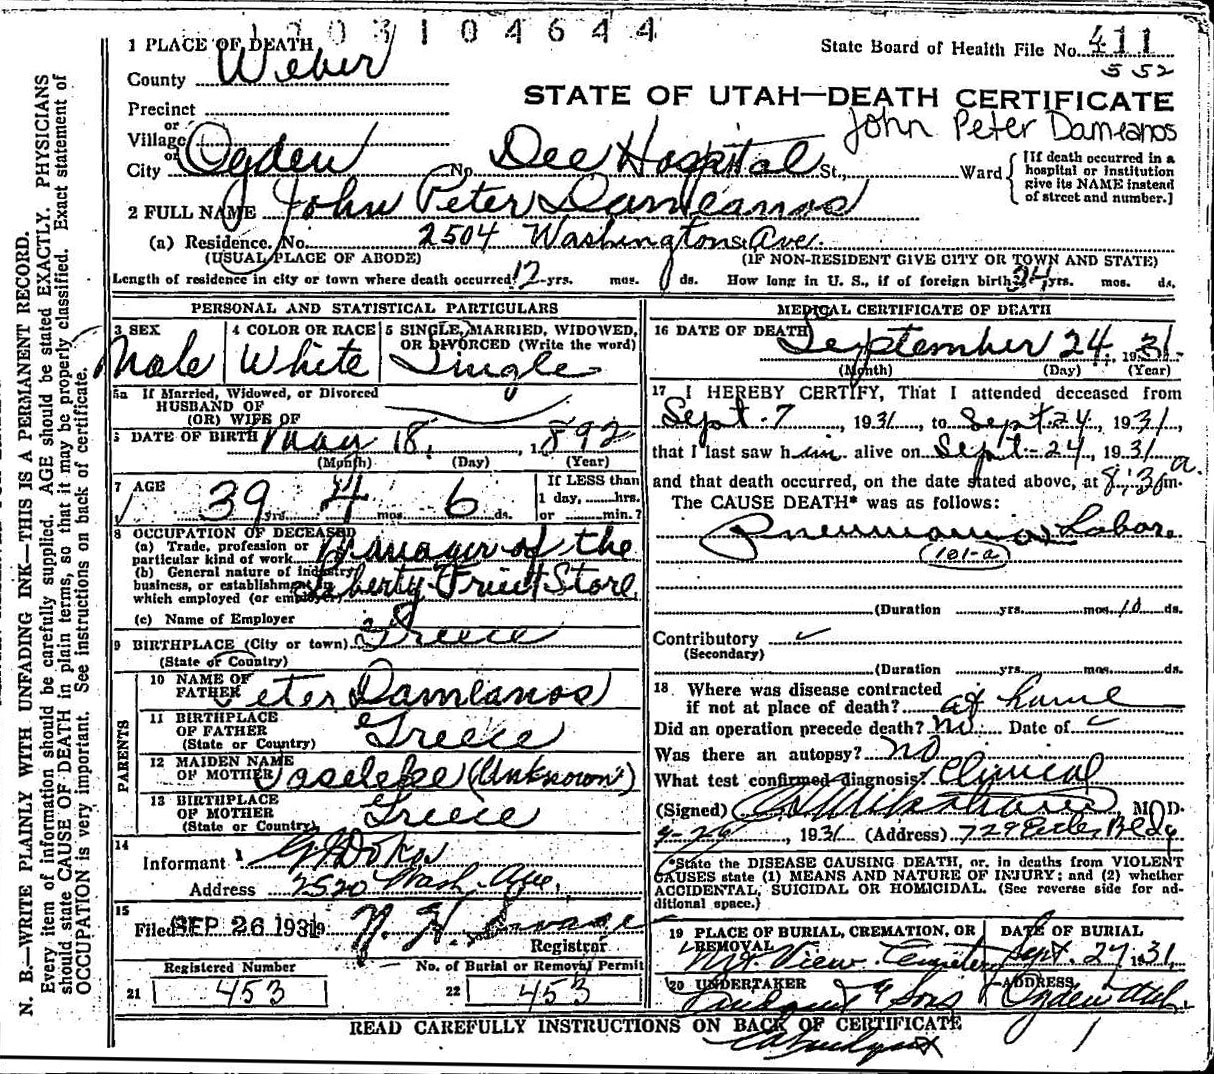 1 0 3 1 0 4 6 4 4
1 PLACE OF DEATH
State Board of Health File No. 411
552
County Weber
STATE OF UTAH—DEATH CERTIFICATE
Precinct
John Peter Dameanos
or
Village
or
City Ogden No. Dee Hospital St., Ward
[If death occurred in a hospital or institution give its NAME instead of street and number.]
2 FULL NAME John Peter Dameanos
(a) Residence, No. 2504 Washington Ave.
(USUAL PLACE OF ABODE) (IF NON-RESIDENT GIVE CITY OR TOWN AND STATE)
Length of residence in city or town where death occurred 12 yrs. mos. ds. How long in U. S., if of foreign birth 24 yrs. mos. ds.
PERSONAL AND STATISTICAL PARTICULARS
3 SEX
Male
4 COLOR OR RACE
White
5 SINGLE, MARRIED, WIDOWED, OR DIVORCED (Write the word)
Single
5a If Married, Widowed, or Divorced
HUSBAND OF
(OR) WIFE OF
6 DATE OF BIRTH May 18, 1892
(Month) (Day) (Year)
7 AGE
39 yrs. 4 mos. 6 ds.
If LESS than
1 day, hrs.
or min.?
8 OCCUPATION OF DECEASED
(a) Trade, profession or particular kind of work Manager of the
(b) General nature of industry, business, or establishment in which employed (or employer) Liberty Fruit Store
(c) Name of Employer
9 BIRTHPLACE (City or town) Greece
(State or Country)
PARENTS
10 NAME OF FATHER Peter Dameanos
11 BIRTHPLACE OF FATHER Greece
(State or Country)
12 MAIDEN NAME OF MOTHER (Unknown)
13 BIRTHPLACE OF MOTHER Greece
(State or Country)
14
Informant G.
Address 2520 Wash. Ave.
15
Filed SEP 26 1931 19 N. H. Savage
Registrar
Registered Number
21 453
No. of Burial or Removal Permit
22 453
MEDICAL CERTIFICATE OF DEATH
16 DATE OF DEATH
September 24, 1931
(Month) (Day) (Year)
17 I HEREBY CERTIFY, That I attended deceased from
Sept. 7, 1931, to Sept. 24, 1931,
that I last saw him alive on Sept. 24, 1931
and that death occurred, on the date stated above, at 8:30 a.m.
The CAUSE DEATH* was as follows:
Pneumonia Lobar
101-a
(Duration yrs. mos. 10 ds.
Contributory
(Secondary)
(Duration yrs. mos. ds.
18 Where was disease contracted
if not at place of death? at home
Did an operation precede death? no Date of
Was there an autopsy? no
What test confirmed diagnosis? Clinical
(Signed) M. D.
9-26, 1931 (Address) 729 Eccles Bldg
*State the DISEASE CAUSING DEATH, or, in deaths from VIOLENT
CAUSES state (1) MEANS AND NATURE OF INJURY; and (2) whether
ACCIDENTAL, SUICIDAL OR HOMICIDAL. (See reverse side for additional space.)
19 PLACE OF BURIAL, CREMATION, OR REMOVAL
Mt. View Cemetery
DATE OF BURIAL
Sept. 27 1931,
20 UNDERTAKER
Lindquist & Sons
ADDRESS
Ogden Utah.
READ CAREFULLY INSTRUCTIONS ON BACK OF CERTIFICATE
N. B.—WRITE PLAINLY WITH UNFADING INK—THIS IS A PERMANENT RECORD.
Every item of information should be carefully supplied. AGE should be stated EXACTLY. PHYSICIANS
should state CAUSE OF DEATH in plain terms, so that it may be properly classified. Exact statement of
OCCUPATION is very important. See instructions on back of certificate.